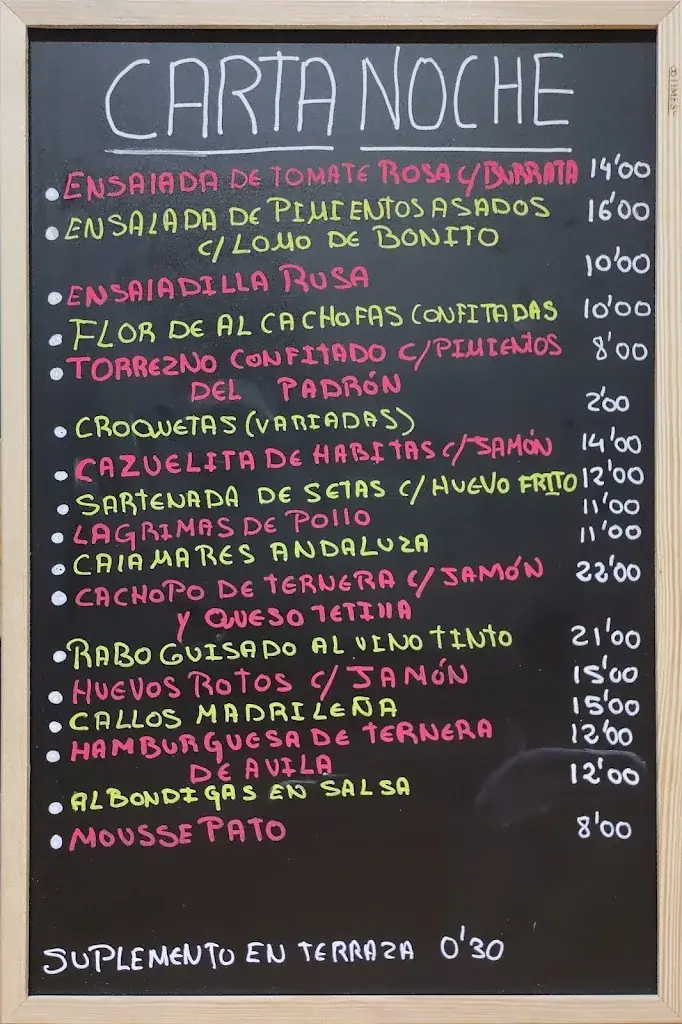 CARTA NOCHE
• ENSALADA DE TOMATE ROSA C/BURRATA 14'00
• ENSALADA DE PIMIENTOS ASADOS 16'00
C/LOMO DE BONITO
• ENSALADILLA RUSA 10'00
• FLOR DE ALCACHOFAS CONFITADAS 10'00
• TORREZNO CONFITADO C/PIMIENTOS 8'00
DEL PADRÓN
• CROQUETAS (VARIADAS) 2'00
• CAZUELITA DE HABITAS C/JAMÓN 14'00
• SARTENADA DE SETAS C/HUEVO FRITO 12'00
• LAGRIMAS DE POLLO 11'00
• CALAMARES ANDALUZA 11'00
• CACHOPO DE TERNERA C/JAMÓN 22'00
Y QUESO TETILLA
• RABO GUISADO AL VINO TINTO 21'00
• HUEVOS ROTOS C/JAMÓN 15'00
• CALLOS MADRILEÑA 15'00
• HAMBURGUESA DE TERNERA 12'00
DE AVILA
• ALBONDIGAS EN SALSA 12'00
• MOUSSE PATO 8'00
SUPLEMENTO EN TERRAZA 0'30